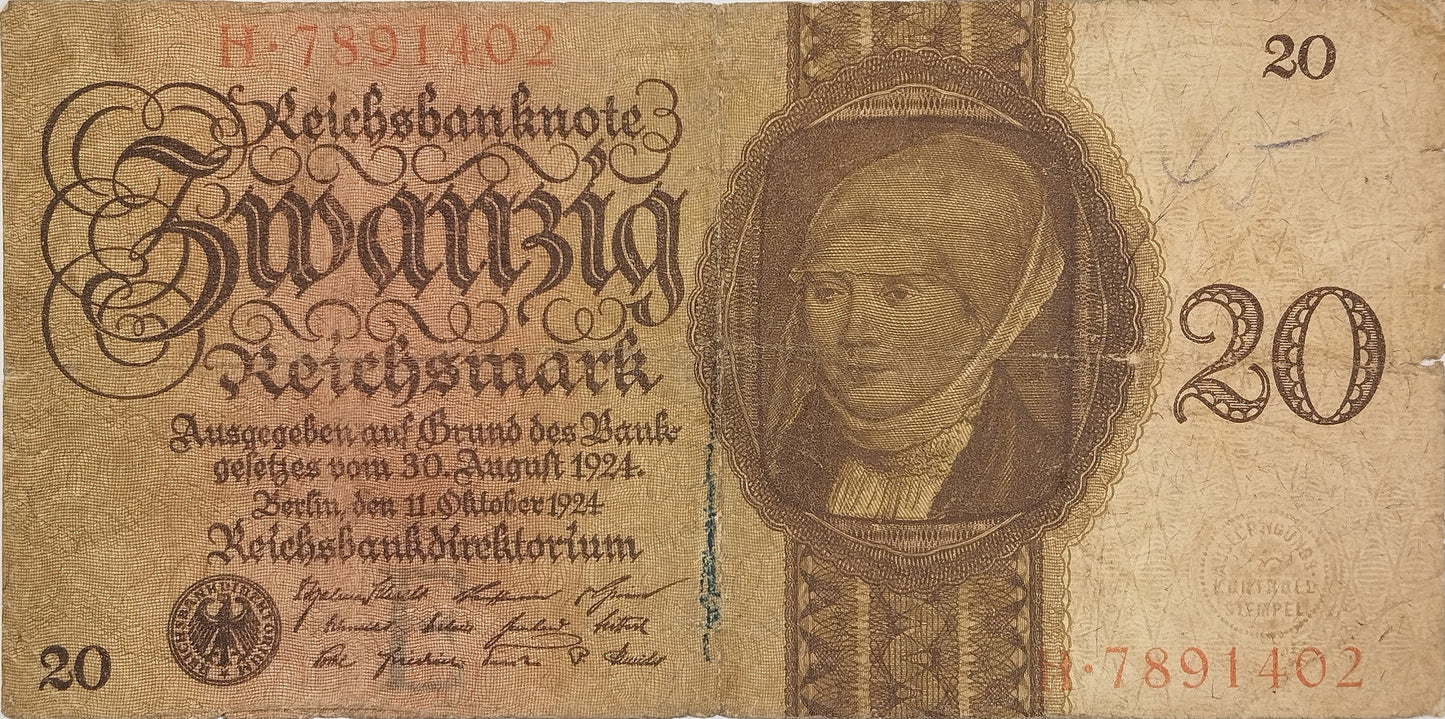 H·7891402
Reichsbanknote
Zwanzig
Reichsmark
Ausgegeben auf Grund des Bank-
gesetzes vom 30. August 1924.
Berlin, den 11. Oktober 1924
Reichsbankdirektorium
20
20
20
KONTROLL
STEMPEL
H·7891402